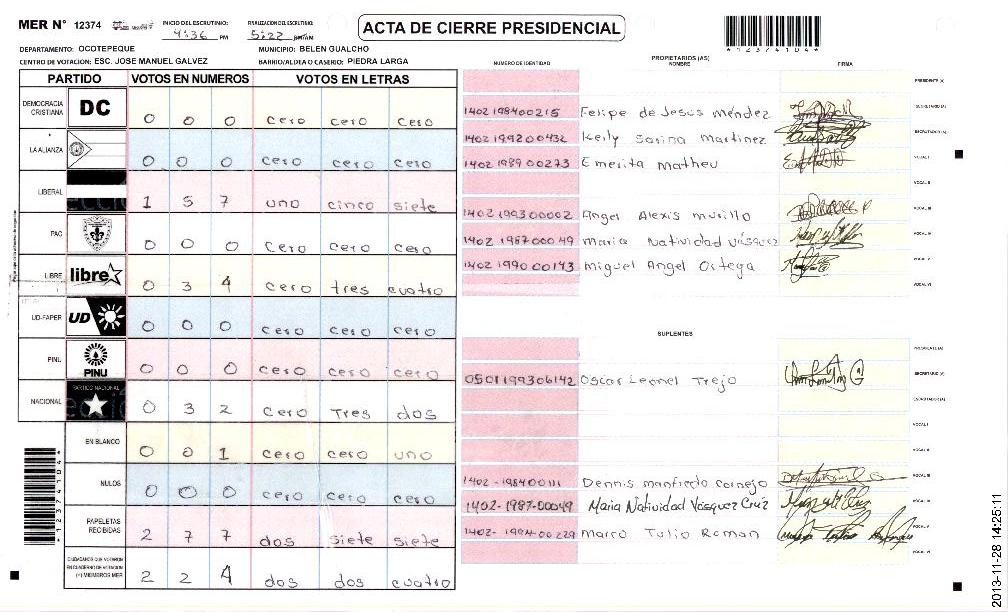 MER N° 12374
INICIO DEL ESCRUTINIO: 4:36 PM
FINALIZACION DEL ESCRUTINIO: 5:22
ACTA DE CIERRE PRESIDENCIAL
*12374104*
DEPARTAMENTO: OCOTEPEQUE
MUNICIPIO: BELEN GUALCHO
CENTRO DE VOTACION: ESC. JOSE MANUEL GALVEZ
BARRIO/ALDEA O CASERIO: PIEDRA LARGA
PARTIDO VOTOS EN NUMEROS VOTOS EN LETRAS
DEMOCRACIA CRISTIANA DC 0 0 0 cero cero cero
LA ALIANZA 0 0 0 cero cero cero
LIBERAL 1 5 7 uno cinco siete
PAC 0 0 0 cero cero cero
LIBRE libre 0 3 4 cero tres cuatro
UD-FAPER UD 0 0 0 cero cero cero
PINU PINU 0 0 0 cero cero cero
NACIONAL PARTIDO NACIONAL 0 3 2 cero tres dos
EN BLANCO 0 0 1 cero cero uno
NULOS 0 0 0 cero cero cero
PAPELETAS RECIBIDAS 2 7 7 dos siete siete
CIUDADANOS QUE VOTARON EN CUADERNO DE VOTACION (+) MIEMBROS MER 2 2 4 dos dos cuatro
*12374104*
PROPIETARIOS (AS)
NUMERO DE IDENTIDAD NOMBRE FIRMA
PRESIDENTE (A)
1402 198400215 Felipe de Jesus méndez SECRETARIO (A)
1402 199200432 Keily Sarina martinez ESCRUTADOR (A)
1402 1989 00273 Emerita Matheu VOCAL I
VOCAL II
1402 199300002 Angel Alexis murillo VOCAL III
1402 1987 00049 maria Natividad Vásquez VOCAL IV
1402 1990 00143 miguel Angel Ortega VOCAL V
VOCAL VI
SUPLENTES
PRESIDENTE (A)
0501199306142 Oscar Leonel Trejo SECRETARIO (A)
ESCRUTADOR (A)
VOCAL I
VOCAL II
1402-198400111 Dennis manfredo cornejo VOCAL III
1402-1987-00049 Maria Natividad Vásquez Cruz VOCAL IV
1402-199400229 Marco Tulio Roman VOCAL V
VOCAL VI
2013-11-28 14:25:11